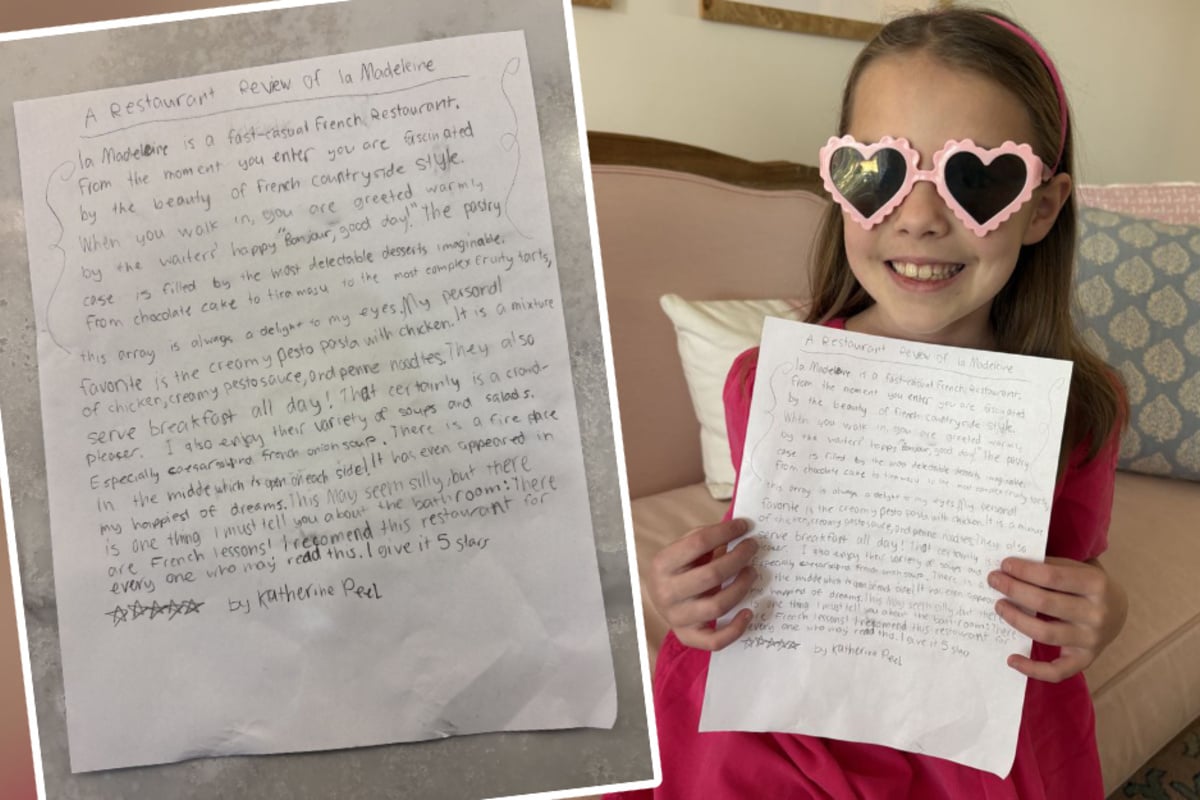 A Restaurant Review of la Madeleine
la Madeleine is a fast-casual French Restaurant.
From the moment you enter you are fascinated
by the beauty of French countryside style.
When you walk in, you are greeted warmly
by the waiters' happy "Bonjour, good day!" The pastry
case is filled by the most delectable desserts imaginable.
From chocolate cake to tiramasu to the most complex fruity tarts,
this array is always a delight to my eyes. My personal
favorite is the creamy pesto pasta with chicken. It is a mixture
of chicken, creamy pesto sauce, and penne noodles. They also
serve breakfast all day! That certainly is a crowd-
pleaser. I also enjoy their variety of soups and salads.
Especially caesar and French onion soup. There is a fire place
in the middle which is open on each side! It has even appeared in
my happiest of dreams. This May seem silly, but there
is one thing I must tell you about the bathroom: There
are French lessons! I recomend this restaurant for
every one who may read this. I give it 5 stars
☆☆☆☆☆ by Katherine Peel
A Restaurant Review of la Madeleine
la Madeleine is a fast-casual French Restaurant.
From the moment you enter you are fascinated
by the beauty of French countryside style.
When you walk in, you are greeted warmly
by the waiters' happy "Bonjour, good day!" The pastry
case is filled by the most delectable desserts imaginable.
From chocolate cake to tiramasu to the most complex fruity tarts,
this array is always a delight to my eyes. My personal
favorite is the creamy pesto pasta with chicken. It is a mixture
of chicken, creamy pesto sauce, and penne noodles. They also
serve breakfast all day! That certainly is
I also enjoy their variety of soups
Especially caesar and French onion soup. There is a
in the middle which is open on each side! It has even
my happiest of dreams. This May seem silly, but there
one thing I must tell you about the bathroom: There
are French lessons! I recomend this restaurant for
every one who may read this. I give it 5 stars
☆☆☆☆☆ by Katherine Peel